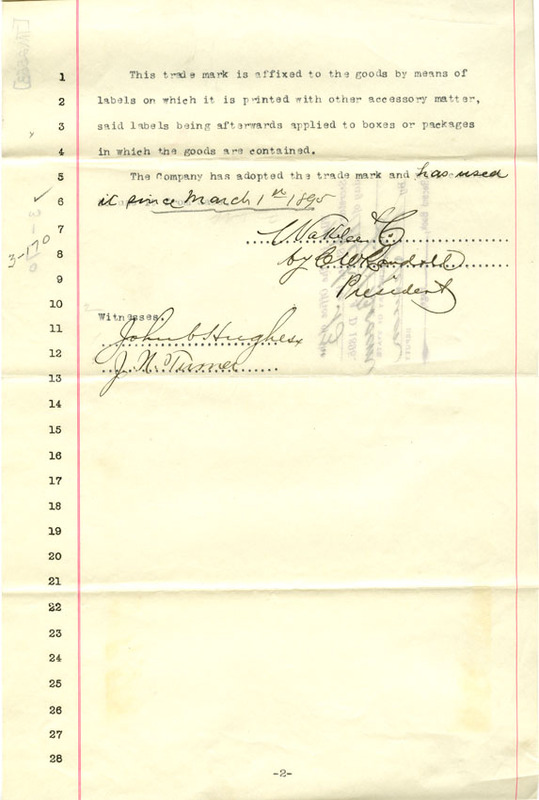 1 This trade mark is affixed to the goods by means of
2 labels on which it is printed with other accessory matter,
3 said labels being afterwards applied to boxes or packages
4 in which the goods are contained.
5 The Company has adopted the trade mark and has used
6 it since March 1st 1895
7 Wakelee & Co
3-170
8 by
9 President
10 Witnesses.
11 John C Hughes
12 J. N. Turner
13
14
15
16
17
18
19
20
21
22
23
24
25
26
27
28
-2-